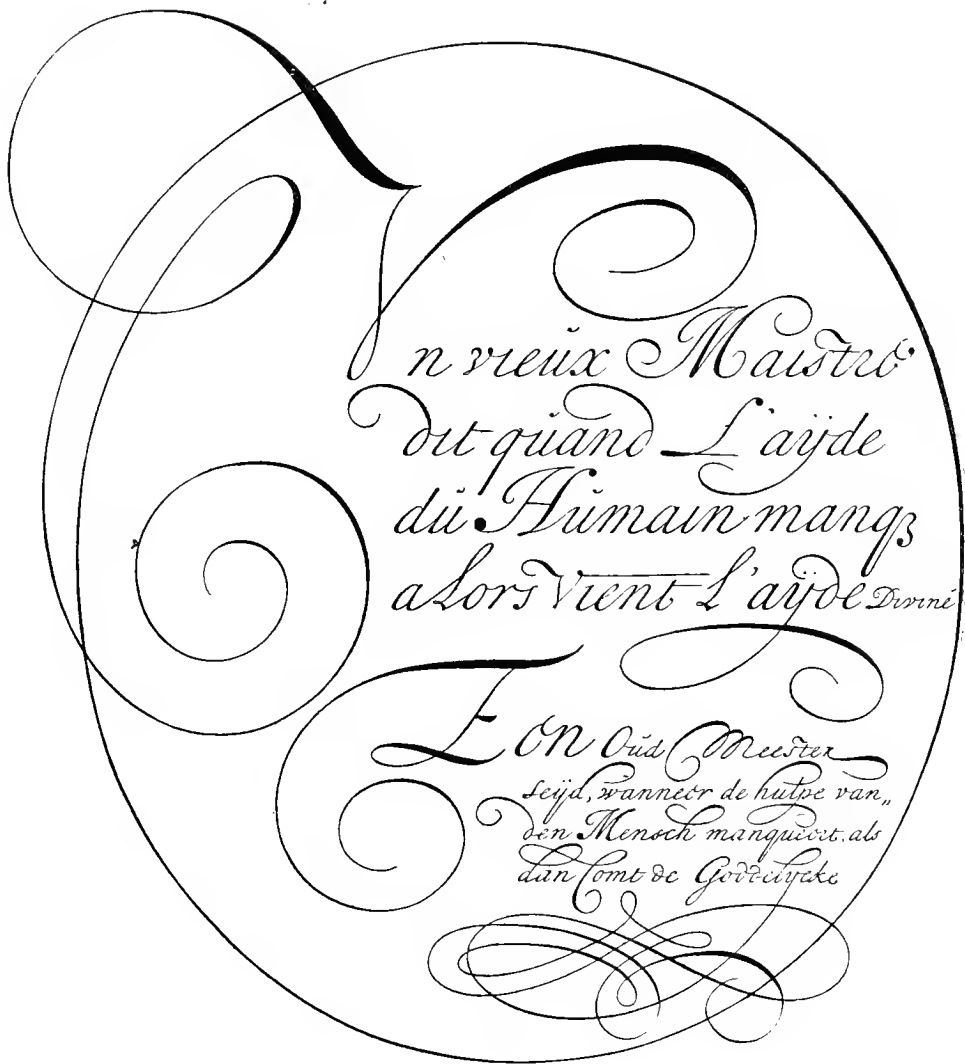 Vn vieŭx Maistre
dit qŭand L'aÿde
dŭ Hŭmain manqꝫ
alors Vient L'aÿde Divine
Een Oŭd Meester
seijd, wanneer de hulpe van„
den Mensch manqueert, als
dan Comt de Goddelijcke